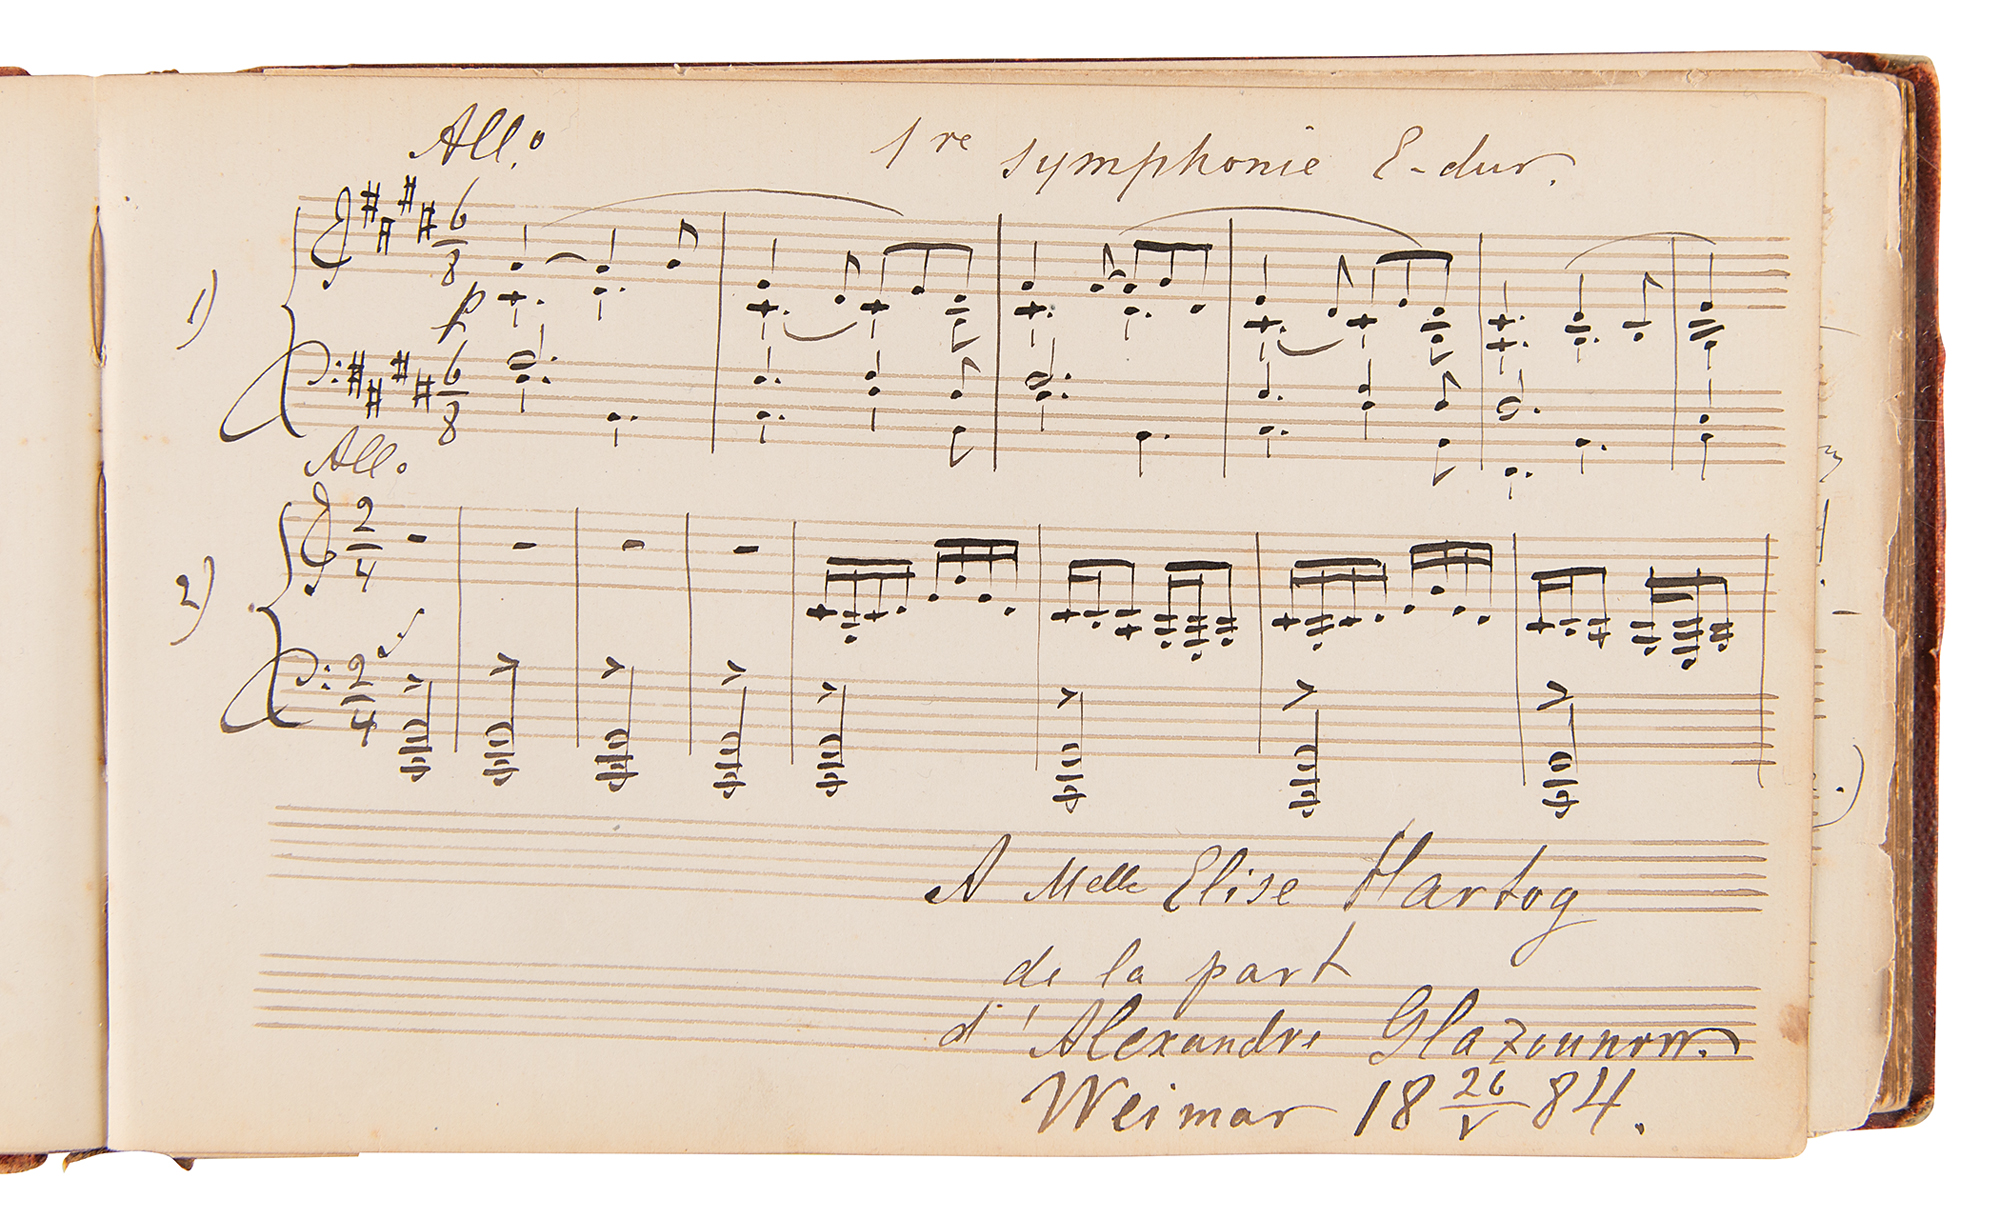 All.o 1re symphonie E-dur.
1)
6/8
p
6/8
All.o
2)
2/4
f
2/4
A Melle Elise Hartog
de la part
d'Alexandre Glazounow.
Weimar 18 26/V 84.